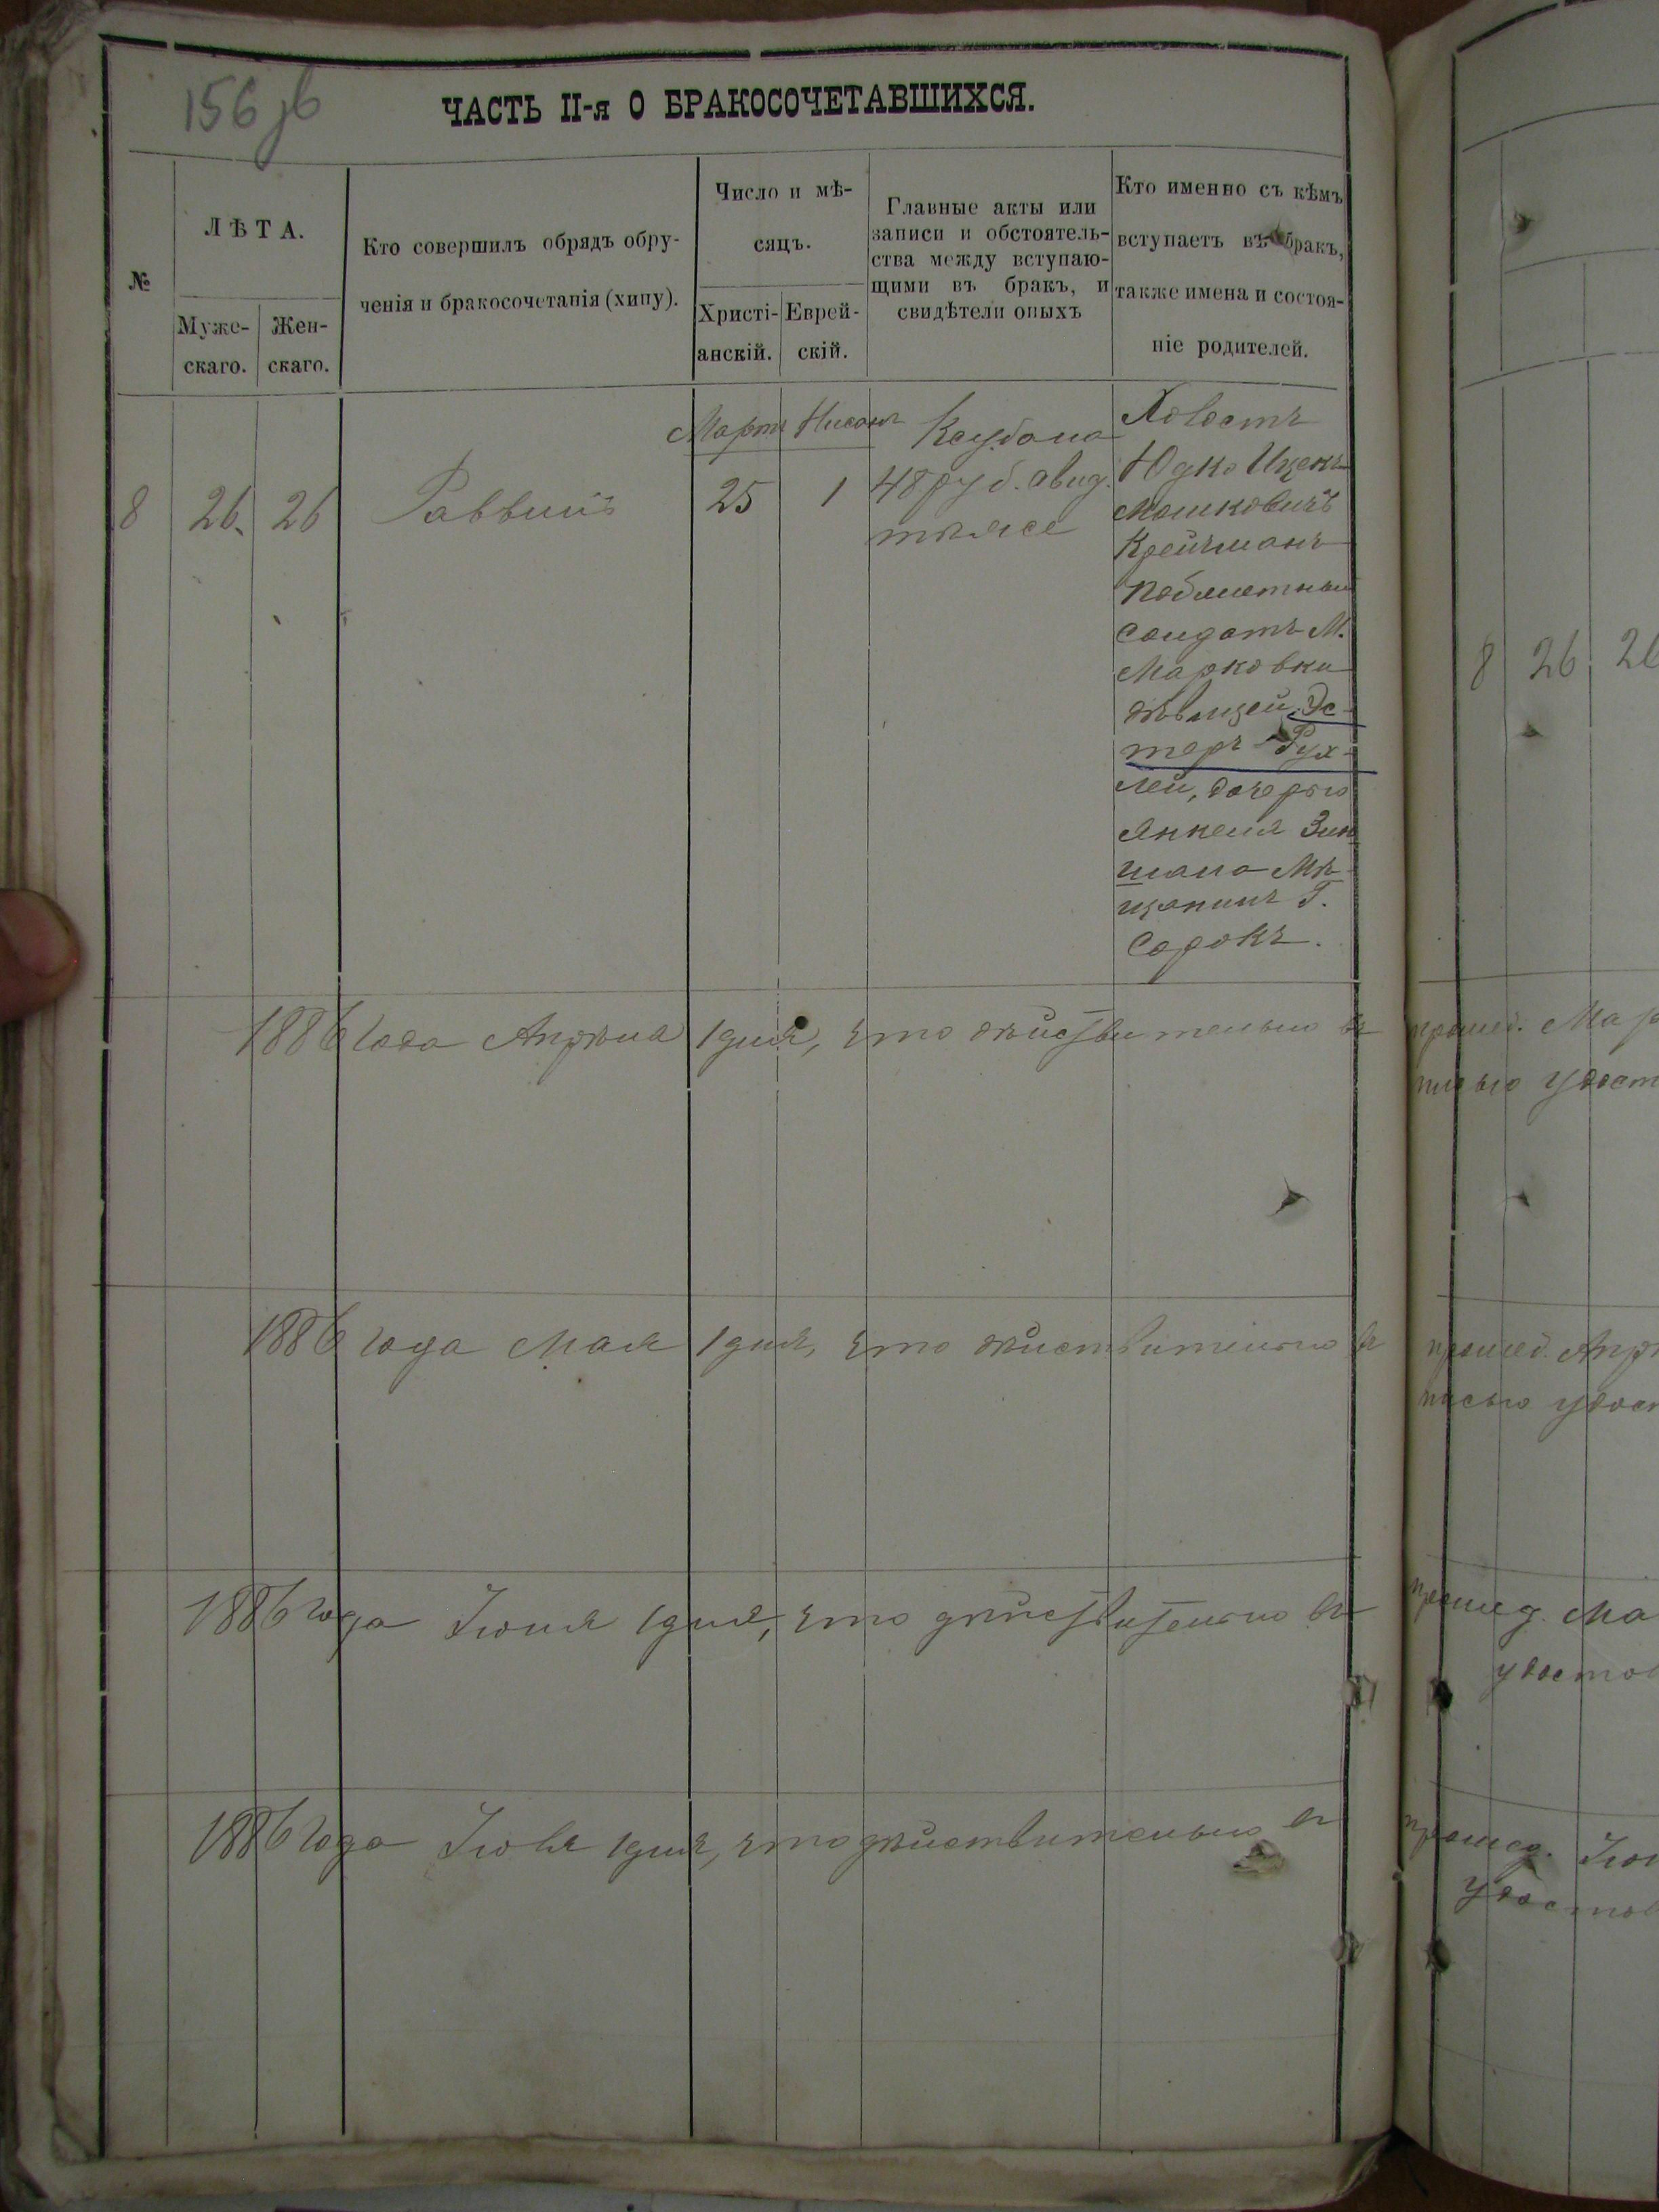 156 зв
ЧАСТЬ II-я О БРАКОСОЧЕТАВШИХСЯ.
№
ЛѢТА.
Муже-
скаго.
Жен-
скаго.
Кто совершилъ обрядъ обру-
ченія и бракосочетанія (хипу).
Число и мѣ-
сяцъ.
Христі-
анскій.
Еврей-
скій.
Главные акты или
записи и обстоятель-
ства между вступаю-
щими въ бракъ, и
свидѣтели оныхъ
Кто именно съ кѣмъ
вступаетъ въ бракъ,
также имена и состоя-
ніе родителей.
8
26
26
Раввинъ
Мартъ
25
Нисонъ
1
Ксубопа
48 руб. свид.
тѣже
Холостъ
Юдко Ицекъ
Мошковичъ
Крейчманъ
Побилетный
Солдатъ М.
Марковки
дѣвицей Эс-
теръ-Рух-
лей, дочерью
Янкеля Зин
шана Мѣ-
щанинъ Г.
Сорокъ.
1886 года Апрѣля 1 дня, что дѣйствительно въ
1886 года Мая 1 дня, что дѣйствительно въ
1886 года Іюня 1 дня, что дѣйствительно въ
1886 года Іюля 1 дня, что дѣйствительно въ
8 26 26
прошед. Мар
удост
прошед. Апр
писью удос
прошед. Ма
удостов
прошед. Іюн
удостов